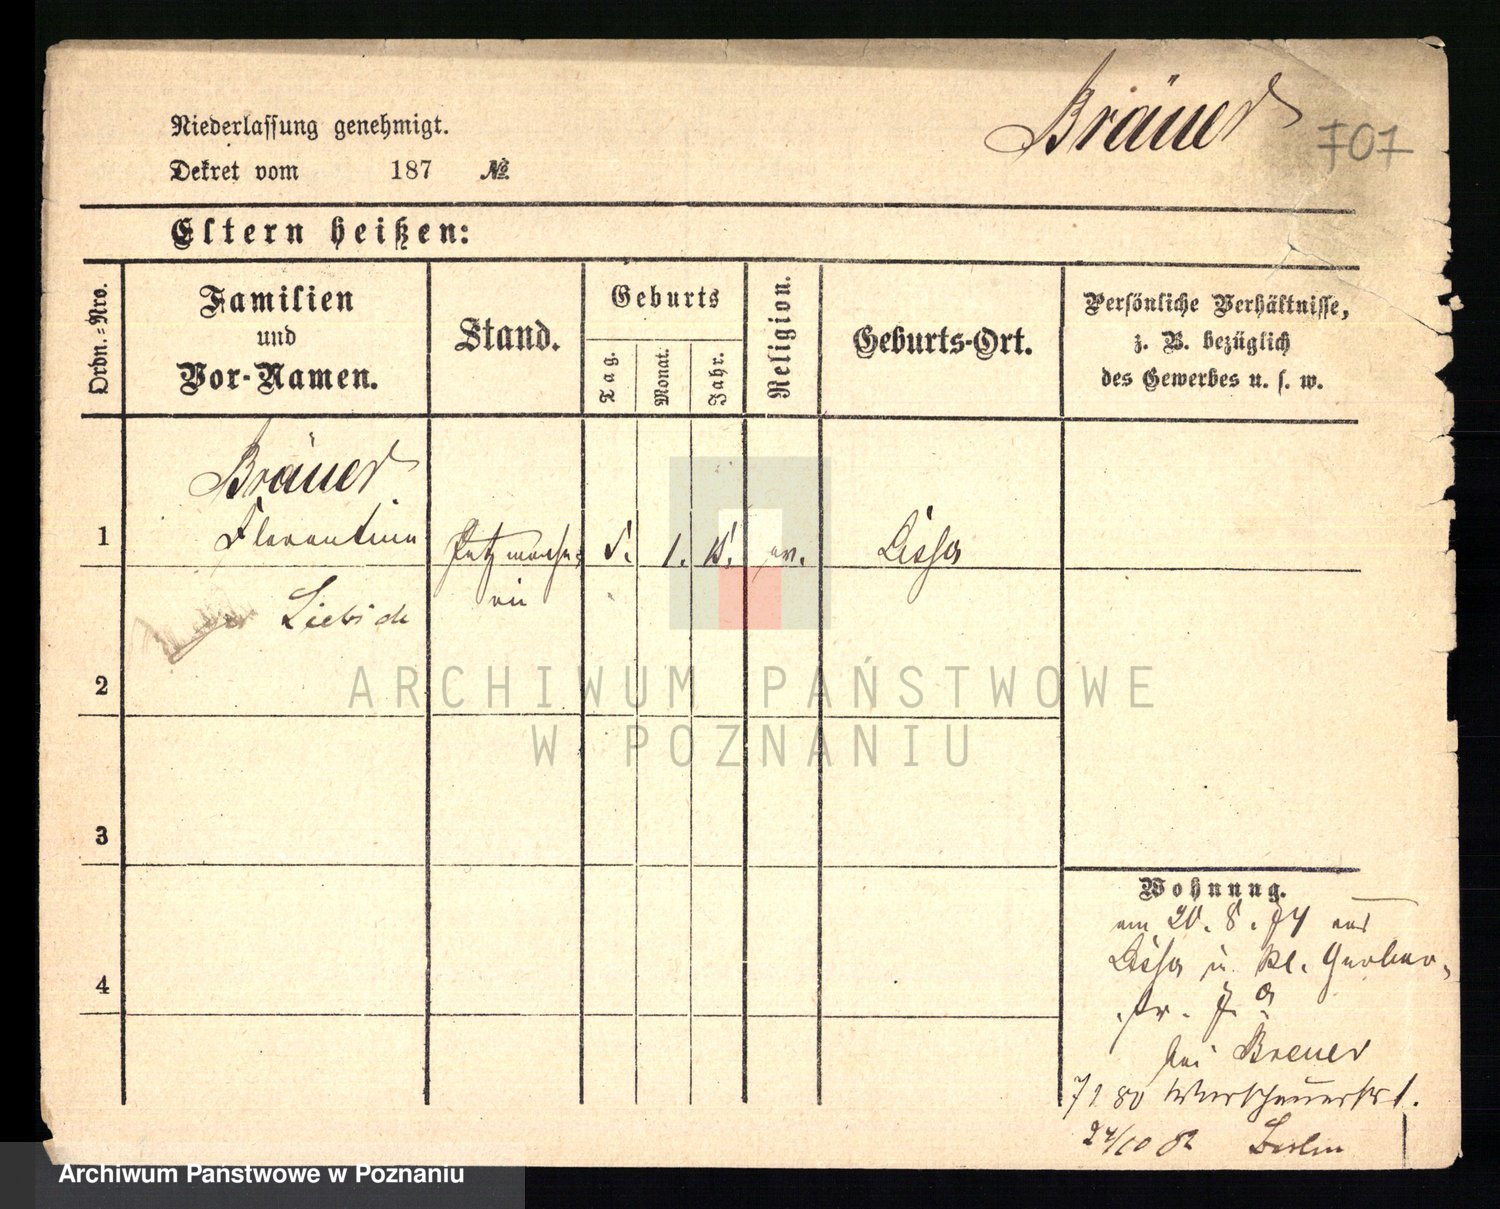 Bräuer
701
Niederlassung genehmigt.
Dekret vom 187 №
Eltern heißen:
Ordn.-Nro.
Familien
und
Vor-Namen.
Stand.
Geburts
Tag.
Monat.
Jahr.
Religion.
Geburts-Ort.
Persönliche Verhältnisse,
z. B. bezüglich
des Gewerbes u. s. w.
Bräuer
1 Florentine Putzmache= 1. ev. Lissa
rin
Liebich
2
3
4
Wohnung.
am 20. 8. 74 aus
Lissa n. kl. Gerber-
str. 7
bei Breuer
7 1 80
24/10 82 Berlin
ARCHIWUM PAŃSTWOWE
W POZNANIU
Archiwum Państwowe w Poznaniu